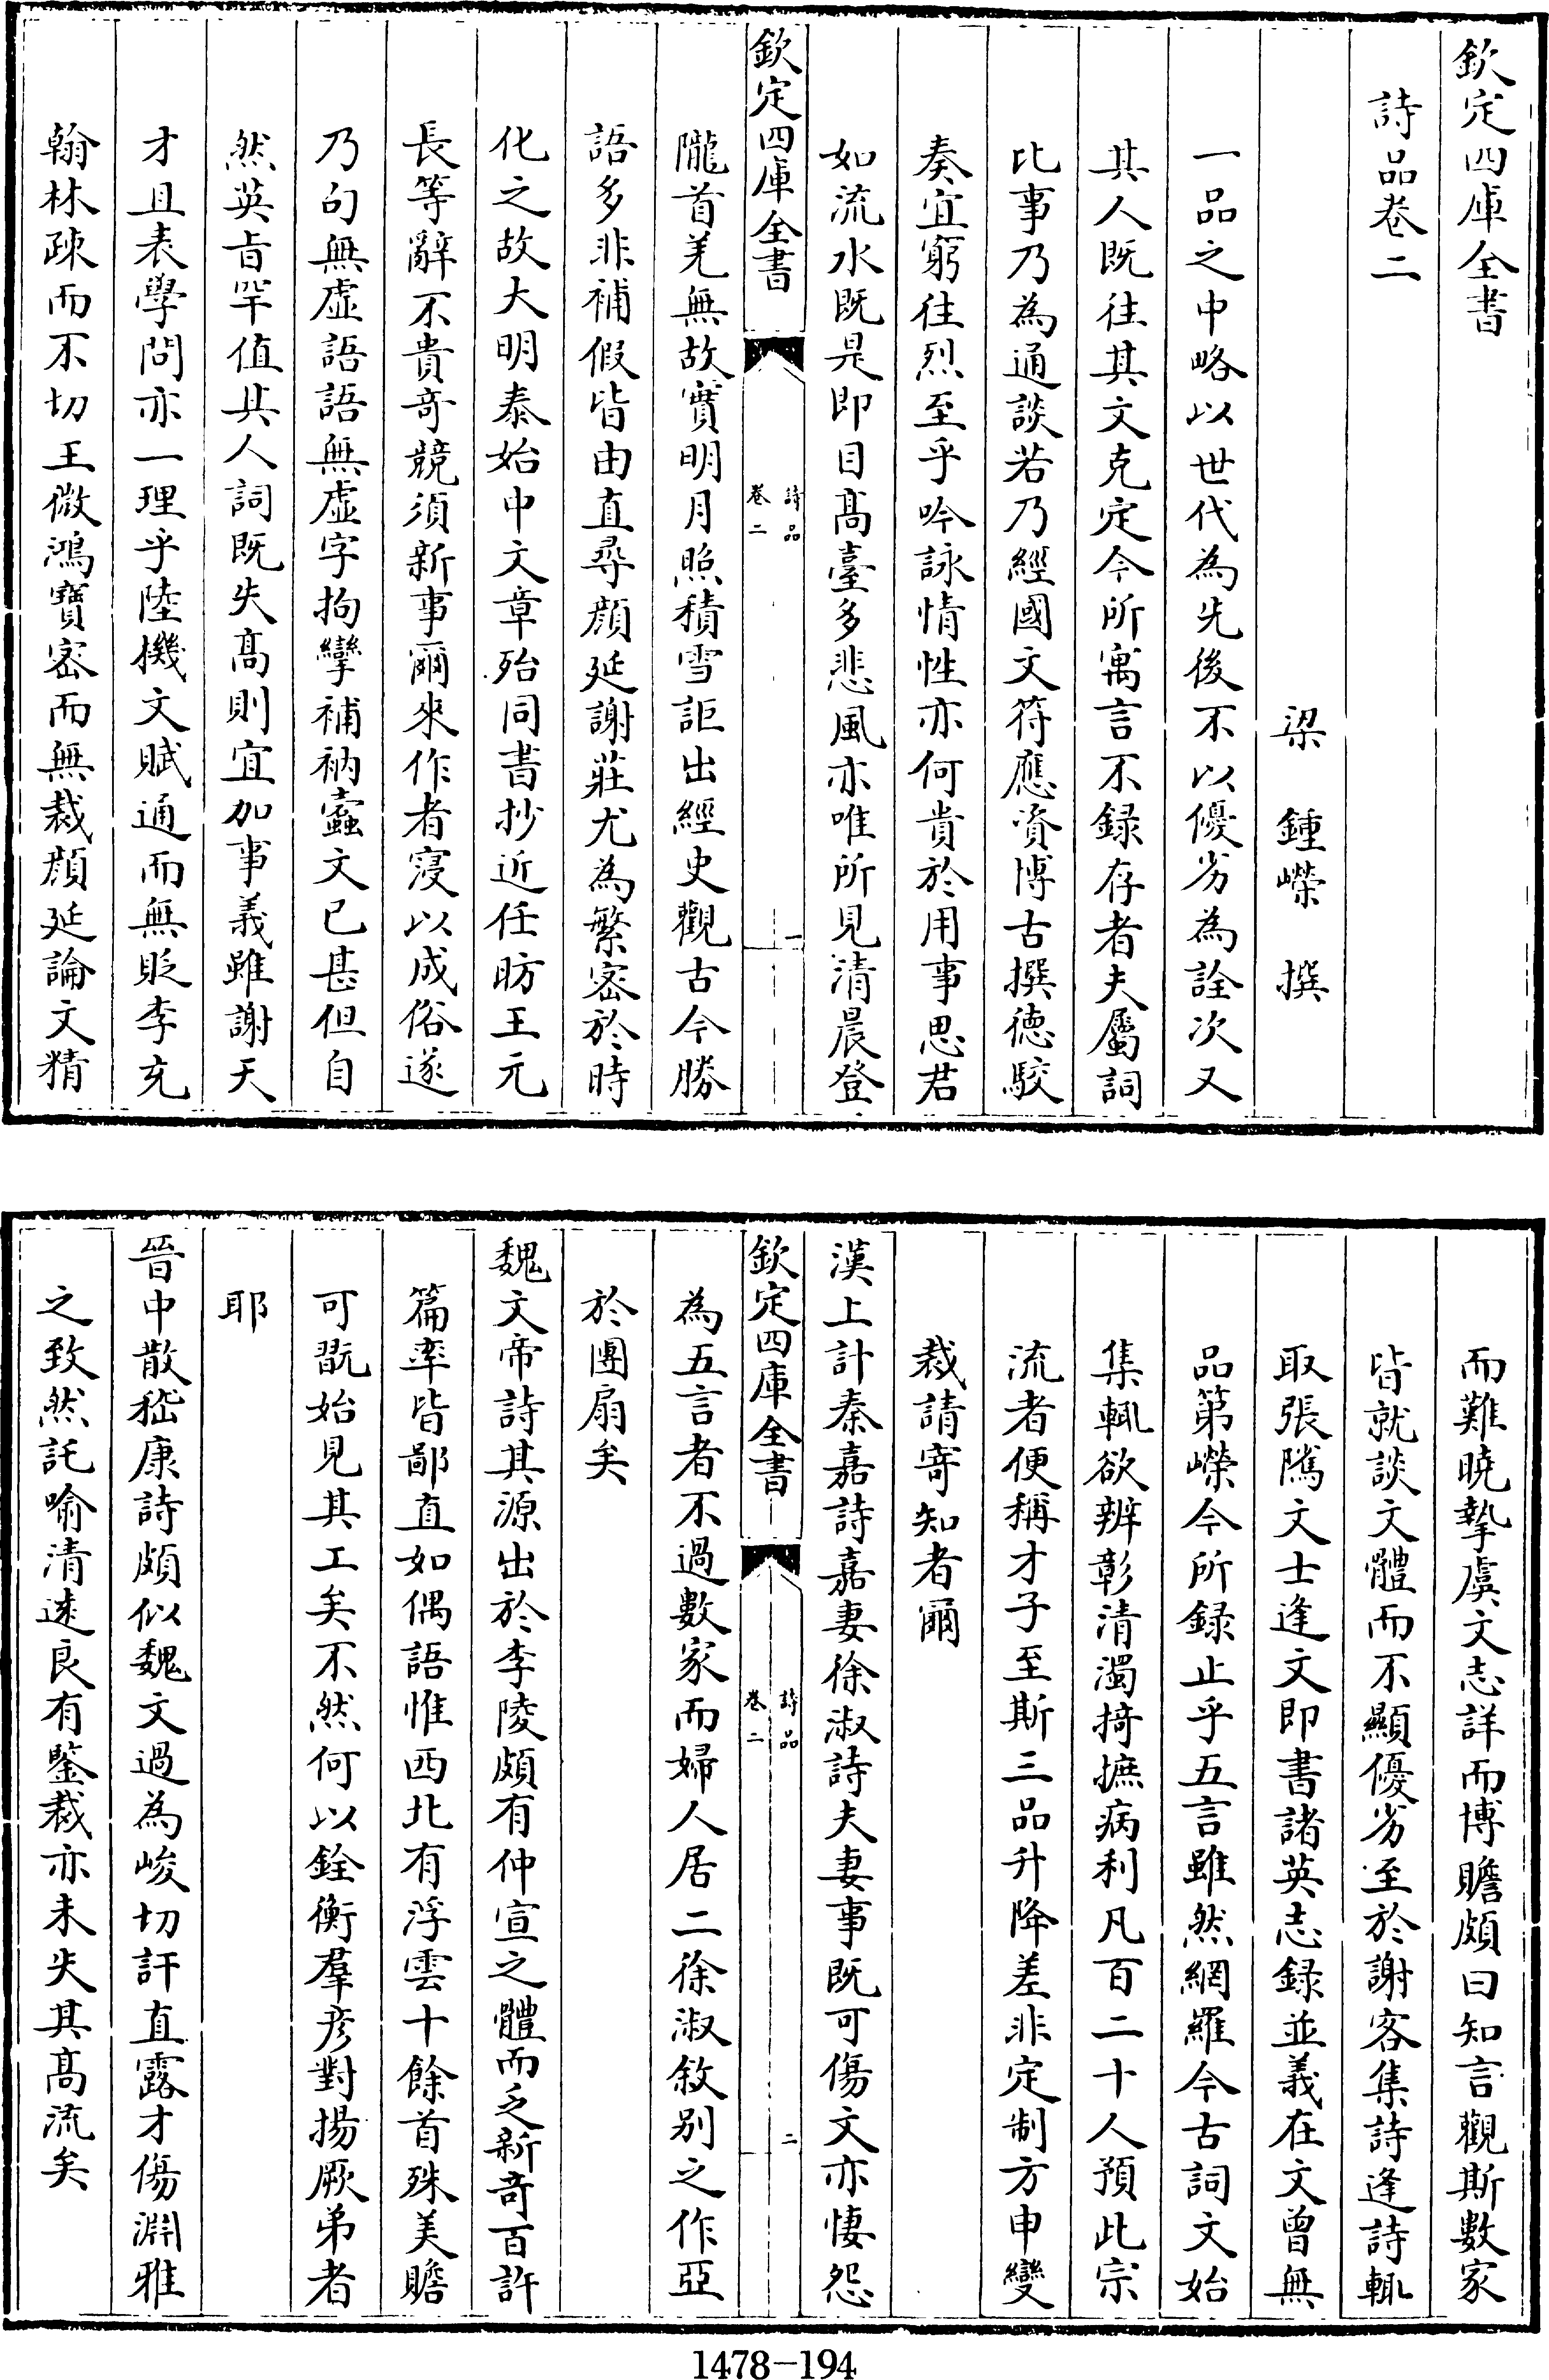 欽定四庫全書
詩品卷二
梁　鍾嶸　撰
一品之中略以世代為先後不以優劣為詮次又
其人既往其文克定今所寓言不録存者夫屬詞
比事乃為通談若乃經國文符應資博古撰徳駮
奏宜窮往烈至乎吟詠情性亦何貴於用事思君
如流水既是即目髙臺多悲風亦唯所見清晨登
欽定四庫全書
詩品
卷二
一
隴首羌無故實明月照積雪詎出經史觀古今勝
語多非補假皆由直尋顔延謝莊尤為繁密於時
化之故大明泰始中文章殆同書抄近任昉王元
長等辭不貴竒競須新事爾來作者寖以成俗遂
乃句無虚語語無虚字拘攣補衲蠧文已甚但自
然英㫖罕值其人詞既失髙則宜加事義雖謝天
才且表學問亦一理乎陸機文賦通而無貶李充
翰林疎而不切王微鴻寶密而無裁顔延論文精
而難曉摯虞文志詳而博贍頗曰知言觀斯數家
皆就談文體而不顯優劣至於謝客集詩逢詩輒
取張隲文士逢文即書諸英志録並義在文曾無
品第嶸今所録止乎五言雖然網羅今古詞文始
集輒欲辨彰清濁掎摭病利凡百二十人預此宗
流者便稱才子至斯三品升降差非定制方申變
裁請寄知者爾
漢上計秦嘉詩嘉妻徐淑詩夫妻事既可傷文亦悽怨
欽定四庫全書
詩品
卷二
二
為五言者不過數家而婦人居二徐淑敘別之作亞
於團扇矣
魏文帝詩其源出於李陵頗有仲宣之體而乏新竒百許
篇率皆鄙直如偶語惟西北有浮雲十餘首殊美贍
可翫始見其工矣不然何以銓衡羣彦對揚厥弟者
耶
晉中散嵇康詩頗似魏文過為峻切訐直露才傷淵雅
之致然託喻清逺良有鑒裁亦未失其髙流矣
1478-194